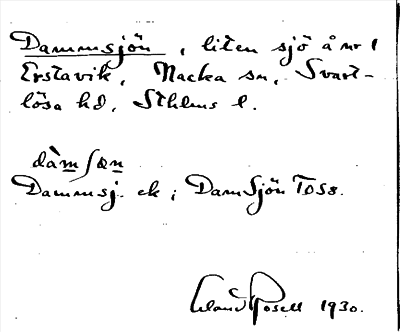 Dammsjön, liten sjö å nr 1
Erstavik, Nacka sn, Svart-
lösa hd, Sthlms l.
dàmʃøn
Dammsj. ek; DamSjön T058.
Rosell 1930.